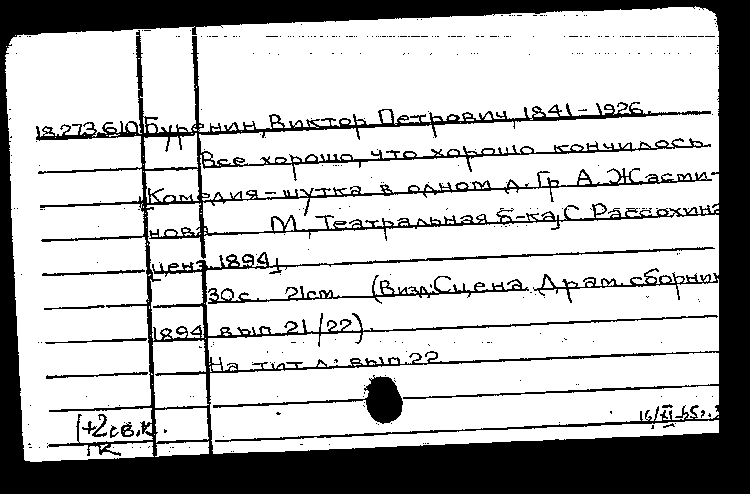 18.273.610 Буренин, Виктор Петрович, 1841-1926.
Все хорошо, что хорошо кончилось.
Комедия-шутка в одном д. Гр А. Жасми-
нова М, Театральная б-ка С Рассохина
ценз 1894
30с. 21см (В изд: Сцена. Драм. сборник
1894 вып 21/22).
На тит л: вып. 22
1+2 св.к.
16/XI-65г.